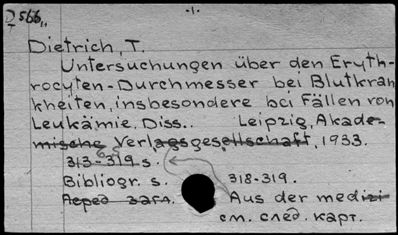 -1-
I 566..
Dietrich, T.
Untersuchungen über den Eryth-
rocyten-Durchmesser bei Blutkran
kheiten, insbesondere bei Fällen von
Leukämie. Diss.. Leipzig, Akade-
mische Verlagsgesellschaft, 1933.
313-319 s.
Bibliogr. s. 318-319.
Перед загл. Aus der medizi
см. след. карт.